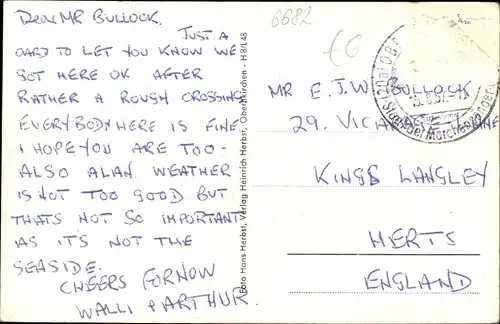 Dear MR BULLOCK.
JUST A
CARD TO LET YOU KNOW WE
GOT HERE OK AFTER
RATHER A ROUGH CROSSING
EVERYBODY HERE IS FINE
I HOPE YOU ARE TOO-
ALSO ALAN WEATHER
IS NOT TOO GOOD BUT
THATS NOT SO IMPORTANT
AS IT'S NOT THE
SEASIDE.
CHEERS FOR NOW
WALLI & ARTHUR.
Foto Hans Herbst, Verlag Heinrich Herbst, Obernkirchen - H 8/L48
6682
£6
MR E.J.W. BULLOCK
29. VICARAGE LANE
KINGS LANGLEY
HERTS
ENGLAND